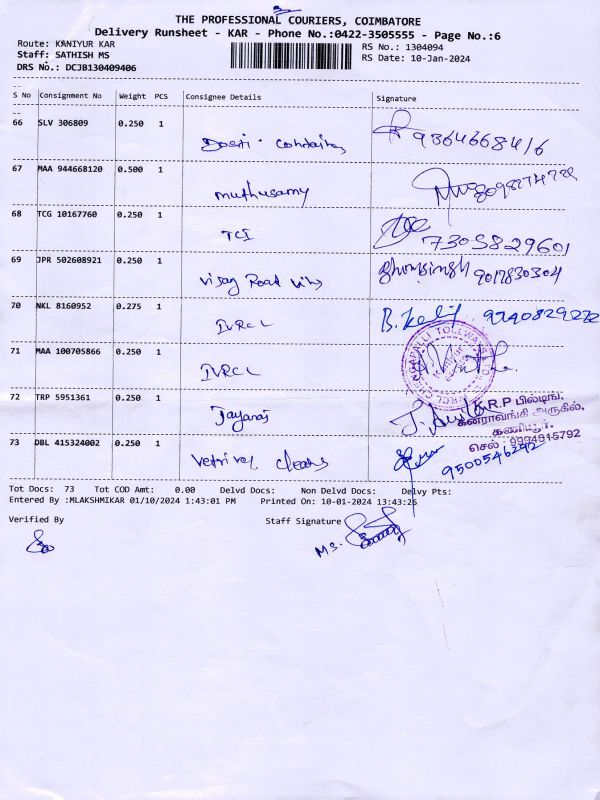 THE PROFESSIONAL COURIERS, COIMBATORE
Delivery Runsheet - KAR - Phone No.:0422-3505555 - Page No.:6
Route: KANIYUR KAR
RS No.: 1304094
Staff: SATHISH MS
RS Date: 10-Jan-2024
DRS No.: DCJB130409406
S No Consignment No Weight PCS Consignee Details Signature
66 SLV 306809 0.250 1 9364668416
67 MAA 944668120 0.500 1 muthusamy
68 TCG 10167760 0.250 1 TCI 7305829601
69 JPR 502608921 0.250 1 Vijay Road 9017830304
70 NKL 8160952 0.275 1 IVRCL B. 9740829272
71 MAA 100705866 0.250 1 IVRCL
72 TRP 5951361 0.250 1 Jayaraj
K.R.P பில்டிங்,
கனராவங்கி அருகில்,
கணியூர்.
செல் : 9994915792
73 DBL 415324002 0.250 1 Vetrivel 9500546292
Tot Docs: 73 Tot COD Amt: 0.00 Delvd Docs: Non Delvd Docs: Delvy Pts:
Entered By :MLAKSHMIKAR 01/10/2024 1:43:01 PM Printed On: 10-01-2024 13:43:26
Verified By Staff Signature
MS.